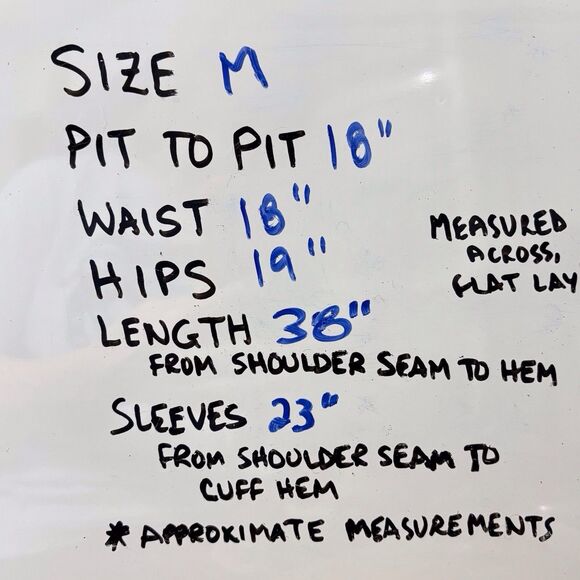 SIZE M
PIT TO PIT 18"
WAIST 18"
HIPS 19"
MEASURED
ACROSS,
FLAT LAY
LENGTH 38"
FROM SHOULDER SEAM TO HEM
SLEEVES 23"
FROM SHOULDER SEAM TO
CUFF HEM
* APPROXIMATE MEASUREMENTS